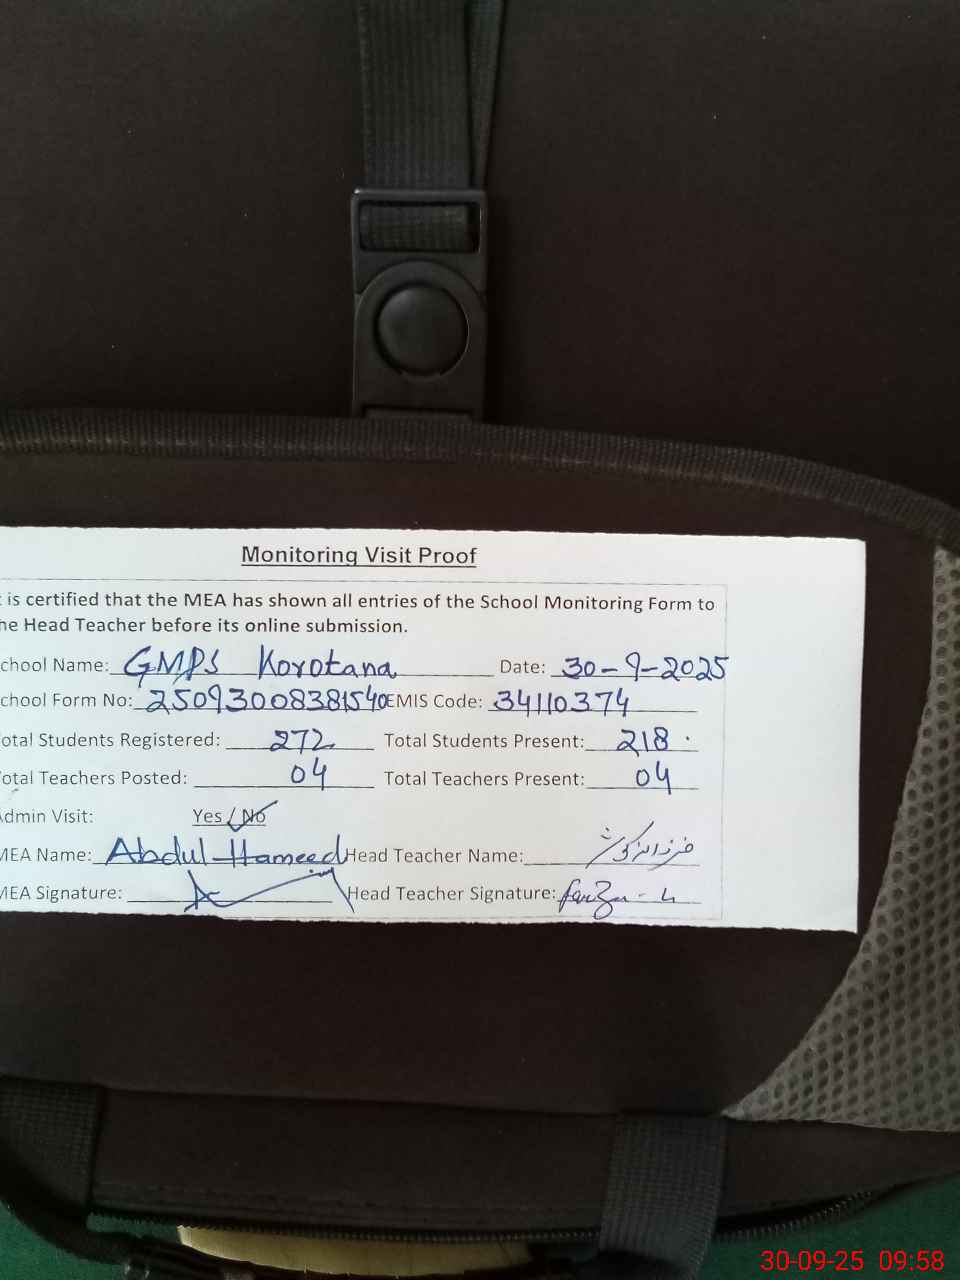 Monitoring Visit Proof
is certified that the MEA has shown all entries of the School Monitoring Form to
he Head Teacher before its online submission.
chool Name: GMPS Korotana Date: 30-9-2025
chool Form No: 25093008381540 EMIS Code: 34110374
otal Students Registered: 272 Total Students Present: 218
otal Teachers Posted: 04 Total Teachers Present: 04
dmin Visit: Yes / No
MEA Name: Abdul Hameed Head Teacher Name:
MEA Signature: Head Teacher Signature:
30-09-25 09:58